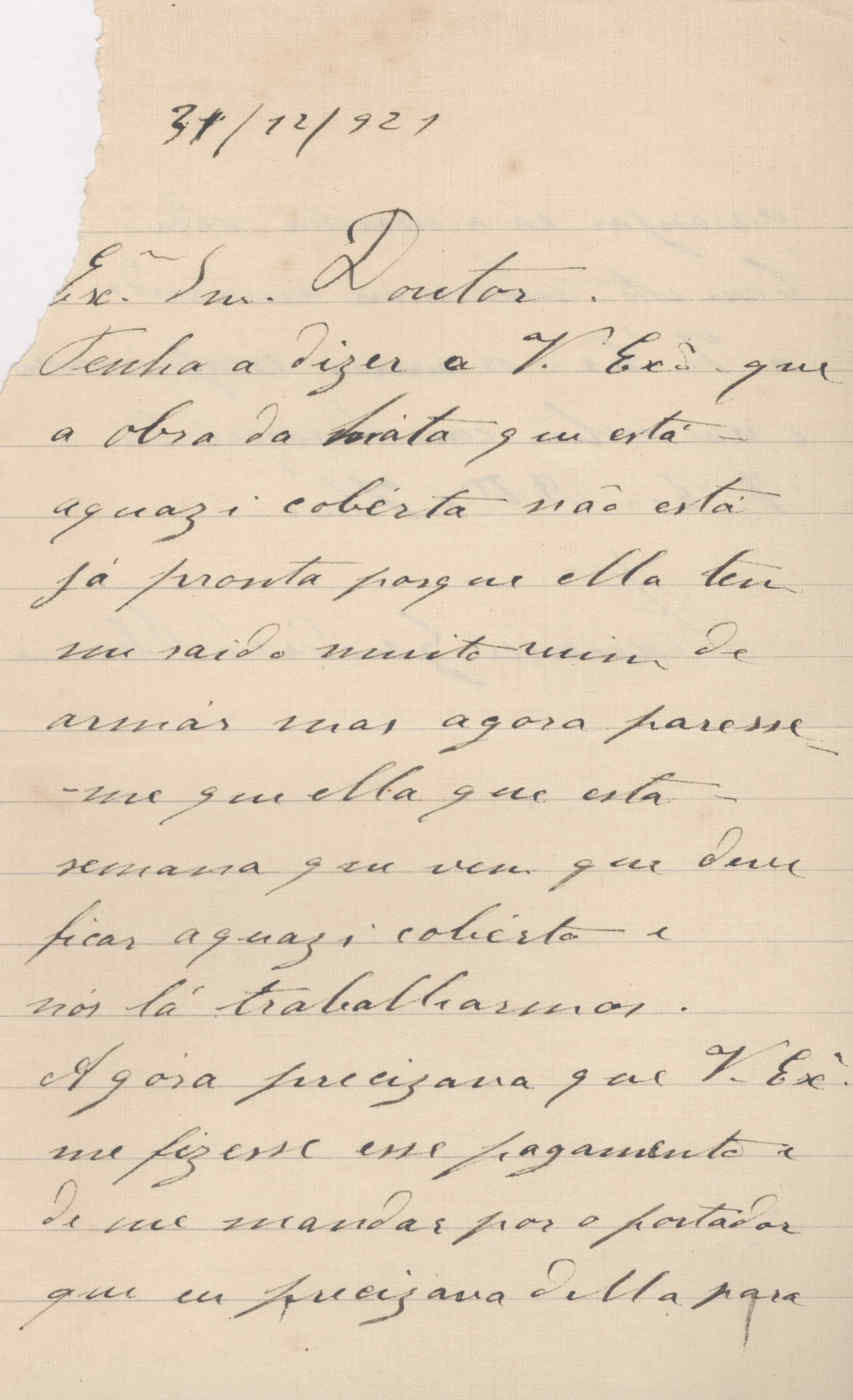 31/12/921
Ex.mo Snr. Doutor.
Tenho a dizer a V. Ex.ª que
a obra da mata que está
aquazi cobérta não está
já pronta porque ella ten
me saido muito ruim de
armár mas agora paresse-
-me que ella que esta
semana que vem que deve
ficar aquazi cobérta e
nós lá trabalharmos.
Agóra precizava que V. Ex.ª
me fizesse esse pagamento e
de me mandar por o portador
que eu precizava della para